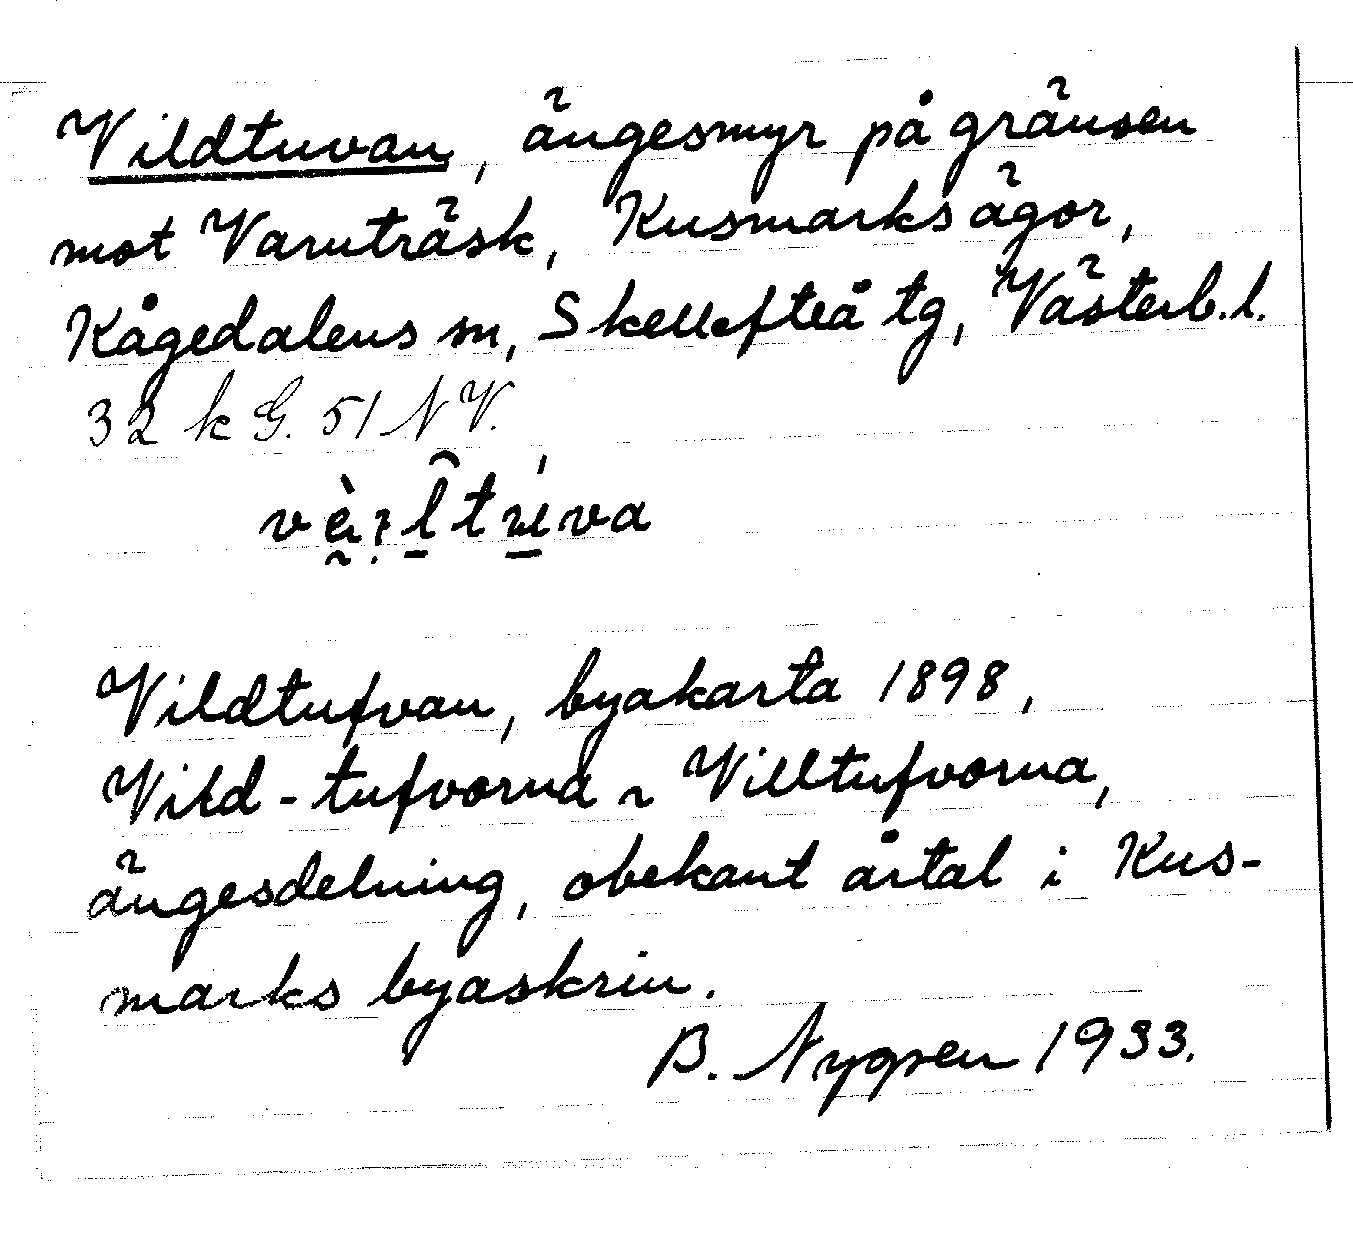 Vildtuvan, ängesmyr på gränsen
mot Varuträsk, Kusmarks ägor,
Kågedalens sn, Skellefteå tg, Västerb. l.
32 k G. 51 NV.
Vildtufvan, byakarta 1898,
Vild-tufvorna ~ Villtufvorna,
ängesdelning, obekant årtal i Kus-
marks byaskrin.
B. Nygren 1933.